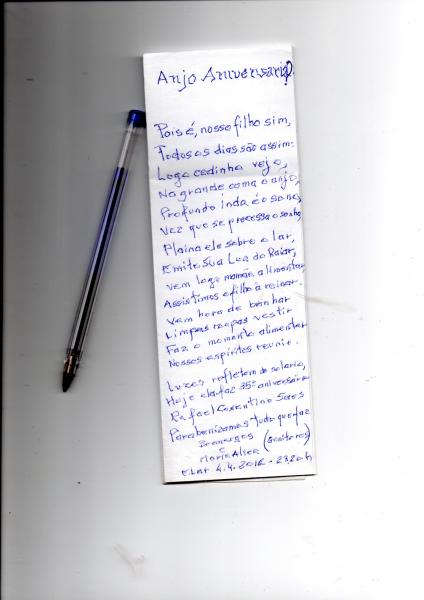 Anjo Aniversario.
Pois é, nosso filho sim,
Todos os dias são assim:
Logo cedinho vejo,
Na grande cama o anjo,
Profundo inda é o sono,
Vez que se processa o sonho,
Plaina ele sobre o lar,
Emite Sua Luz do Raiar,
vem logo mamãe alimentar
Assistimos o filho à reinar.
Vem hora de banhar
Limpas roupas vestir
Faz o momento alimentar
Nossos espíritos reunir.
Luzes refletem do solario,
Hoje ela faz 35º aniversário
Rafael Cosentino
Parabenizamos tudo que faz
e
Maria Alice (Genitores)
4.4.2016 - 23,20 h